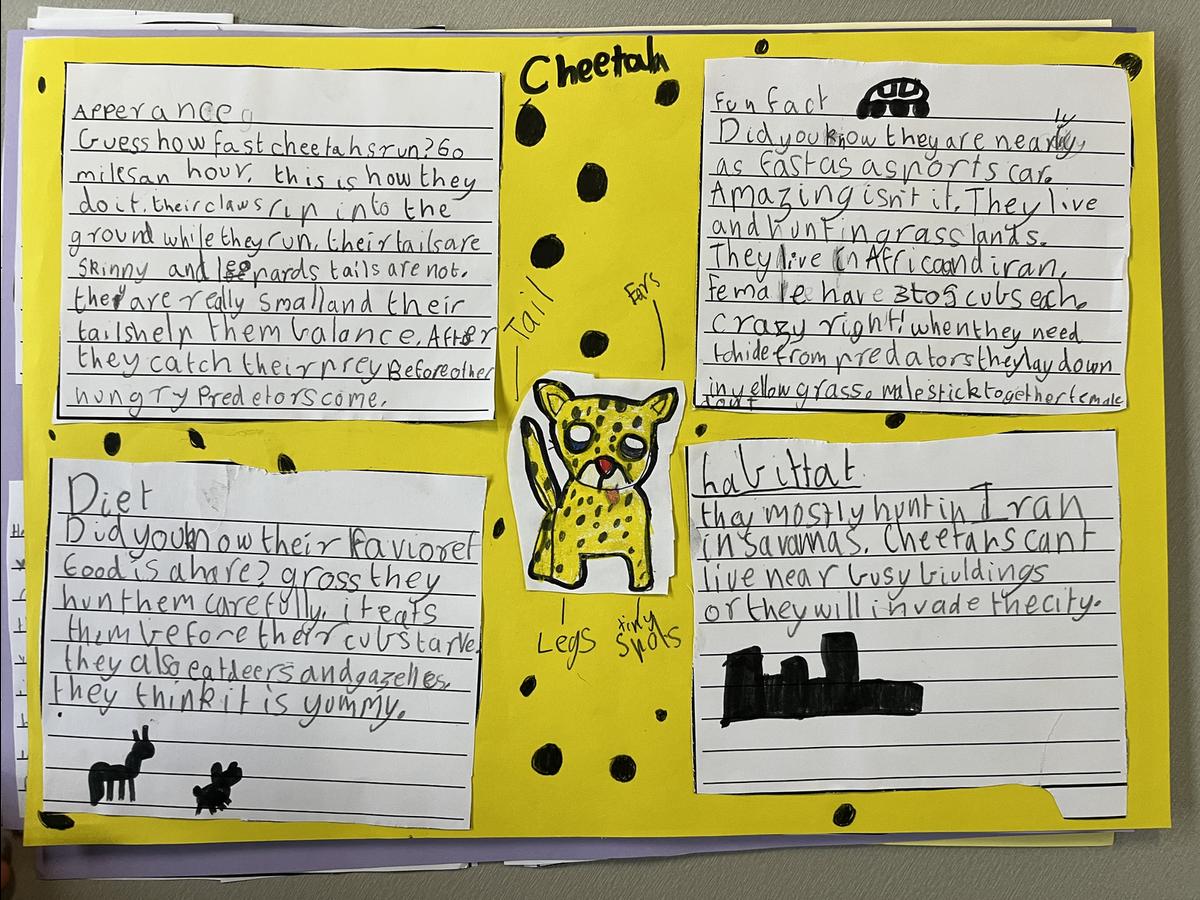 Cheetah
Apperance
Guess how fast cheetahs run? 60
miles an hour. this is how they
do it. their claws rip into the
ground while they run. their tails are
skinny and leopards tails are not.
they are really small and their
tails help them balance. After
they catch their prey Before other
hungry Predetors come.
Fun fact
Did you know they are nearly
as fast as a sports car.
Amazing isn't it. They live
and hunt in grass lands.
They live in Africa and iran.
Female have 3 to 5 cubs each.
crazy right! when they need
to hide from predators they lay down
in yellow grass. male stick together female
Tail
Ears
Legs
tiny
spots
Diet
Did you know their favioret
food is a hare? gross they
hunt them carefully. it eats
them before their cub starve.
they also eat deers and gazelles.
they think it is yummy.
habittat.
they mostly hunt in Iran
in savannas. Cheetahs cant
live near busy biuldings
or they will invade the city.